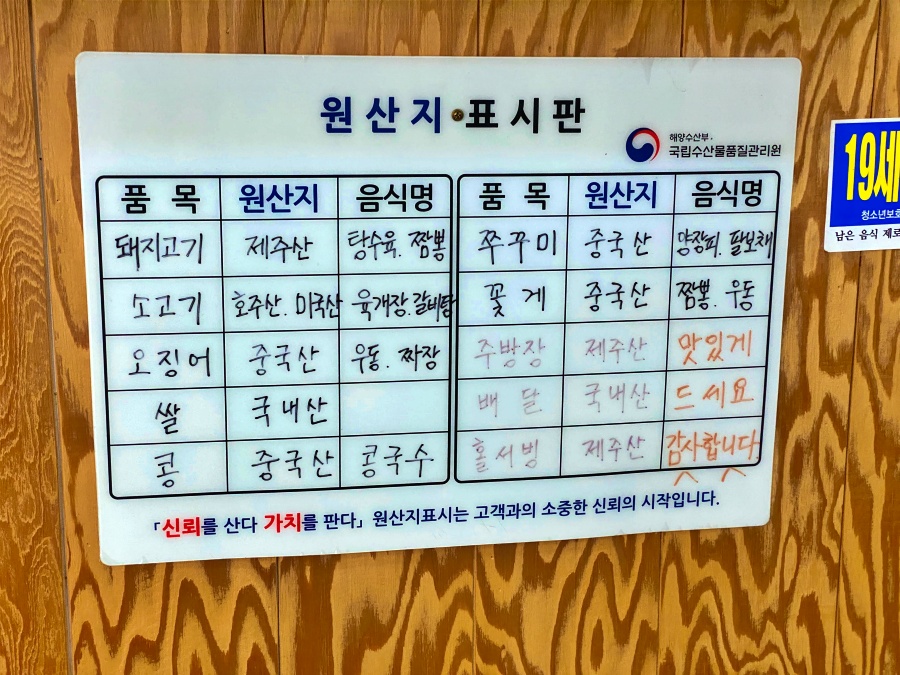 원산지 표시판
해양수산부
국립수산물품질관리원
품 목 원산지 음식명
돼지고기 제주산 탕수육. 짬뽕
소고기 호주산. 미국산 육개장. 갈비탕
오징어 중국산 우동. 짜장
쌀 국내산
콩 중국산 콩국수
품 목 원산지 음식명
쭈꾸미 중국산 양장피. 팔보채
꽃게 중국산 짬뽕. 우동
주방장 제주산 맛있게
배달 국내산 드세요
홀서빙 제주산 감사합니다
「신뢰를 산다 가치를 판다」 원산지표시는 고객과의 소중한 신뢰의 시작입니다.
19세
청소년보호
남은 음식 제로